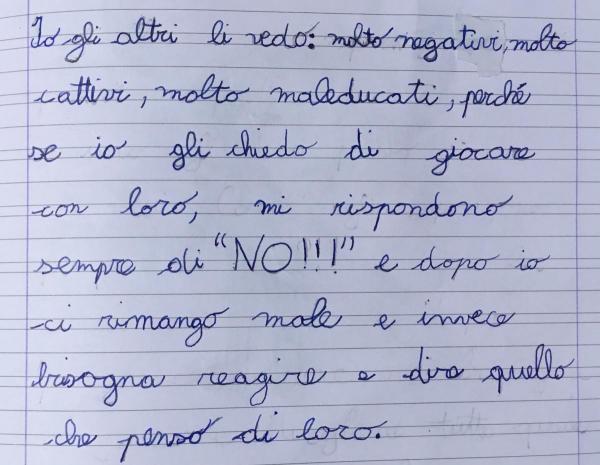 Io gli altri li vedo: molto negativi, molto
cattivi, molto maleducati, perché
se io gli chiedo di giocare
con loro, mi rispondono
sempre di "NO!!!" e dopo io
ci rimango male e invece
bisogna reagire e dire quello
che penso di loro.